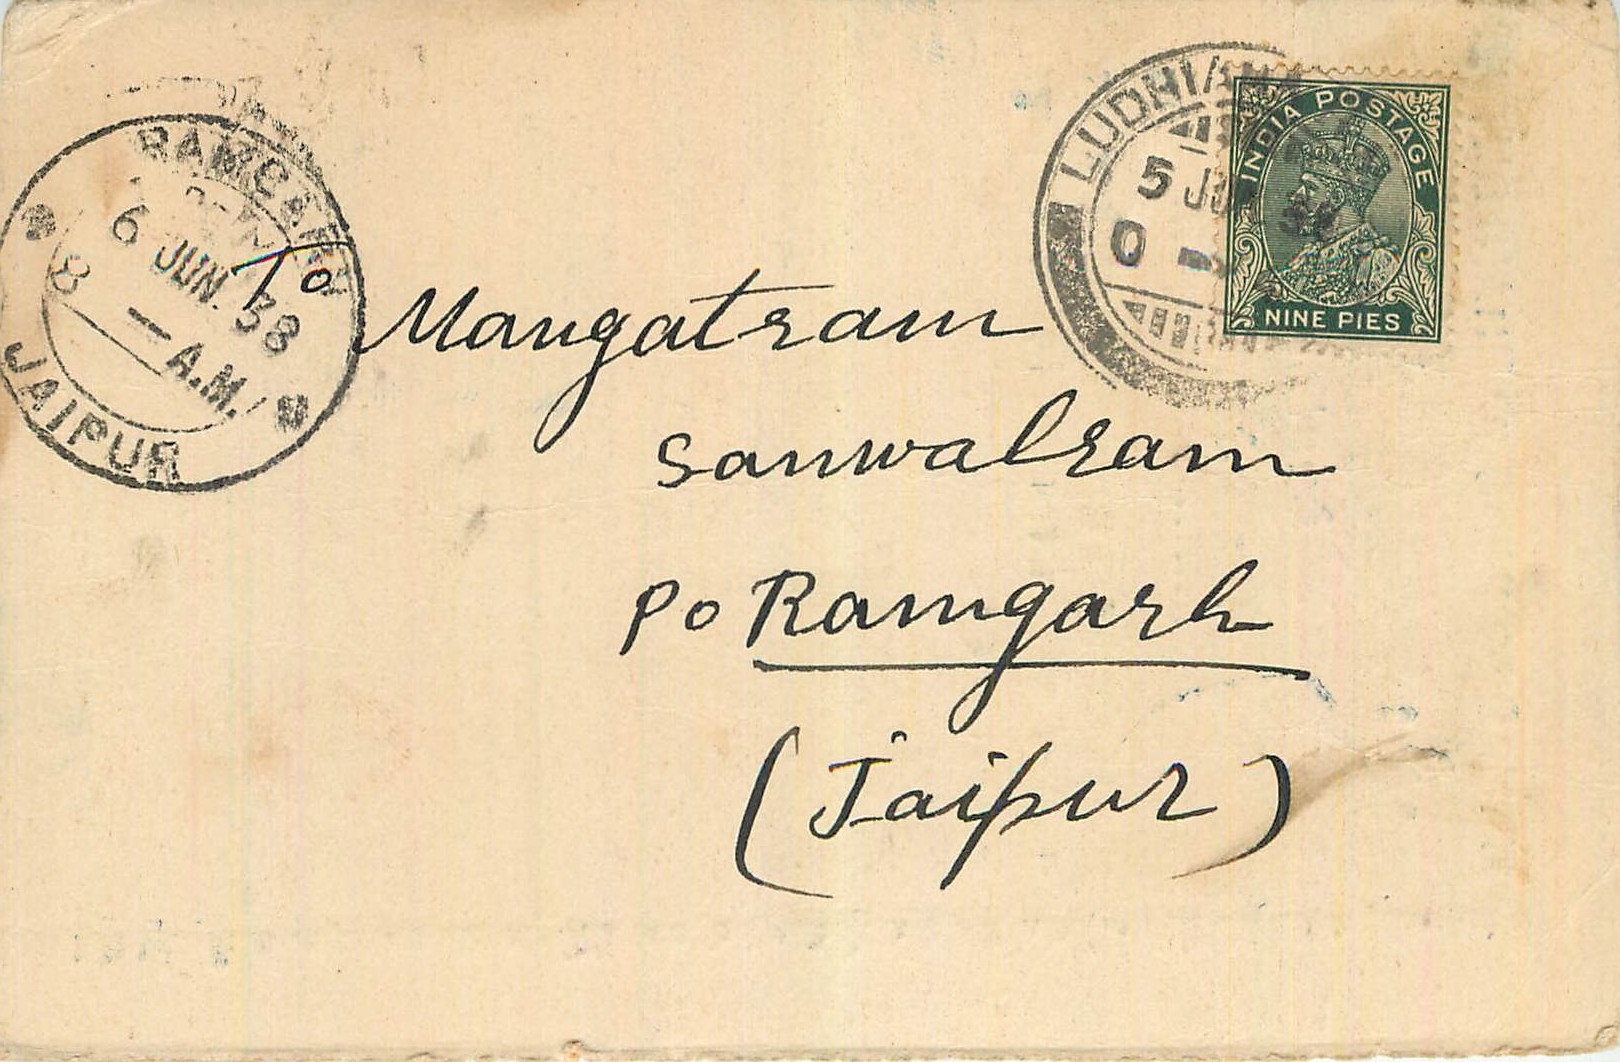 RAMGARH
6 JUN. 38
8 — A.M.
JAIPUR
LUDHIANA
5 JU
38
INDIA POSTAGE
NINE PIES
To
Mangatram
Sanwalram
Po Ramgarh
(Jaipur)